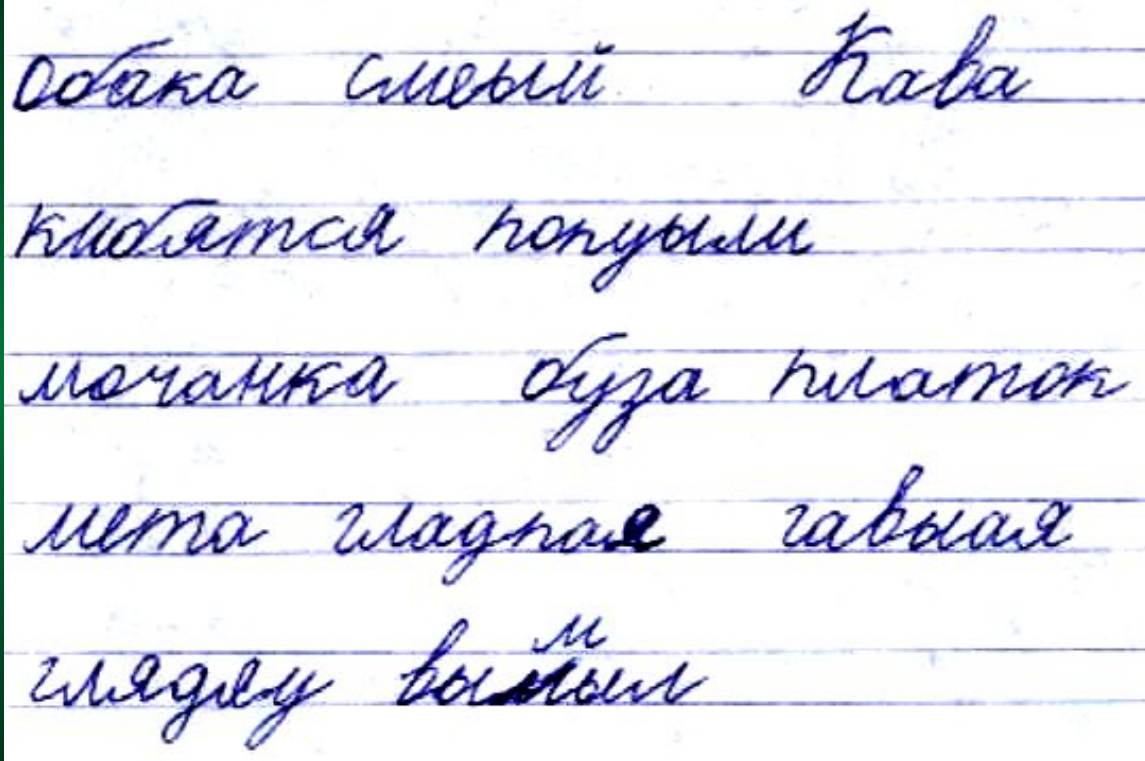 обака смеый Кава
киобятся попуыли
мочанка буза платок
мета гладпае гавыая
глядяу вымыл